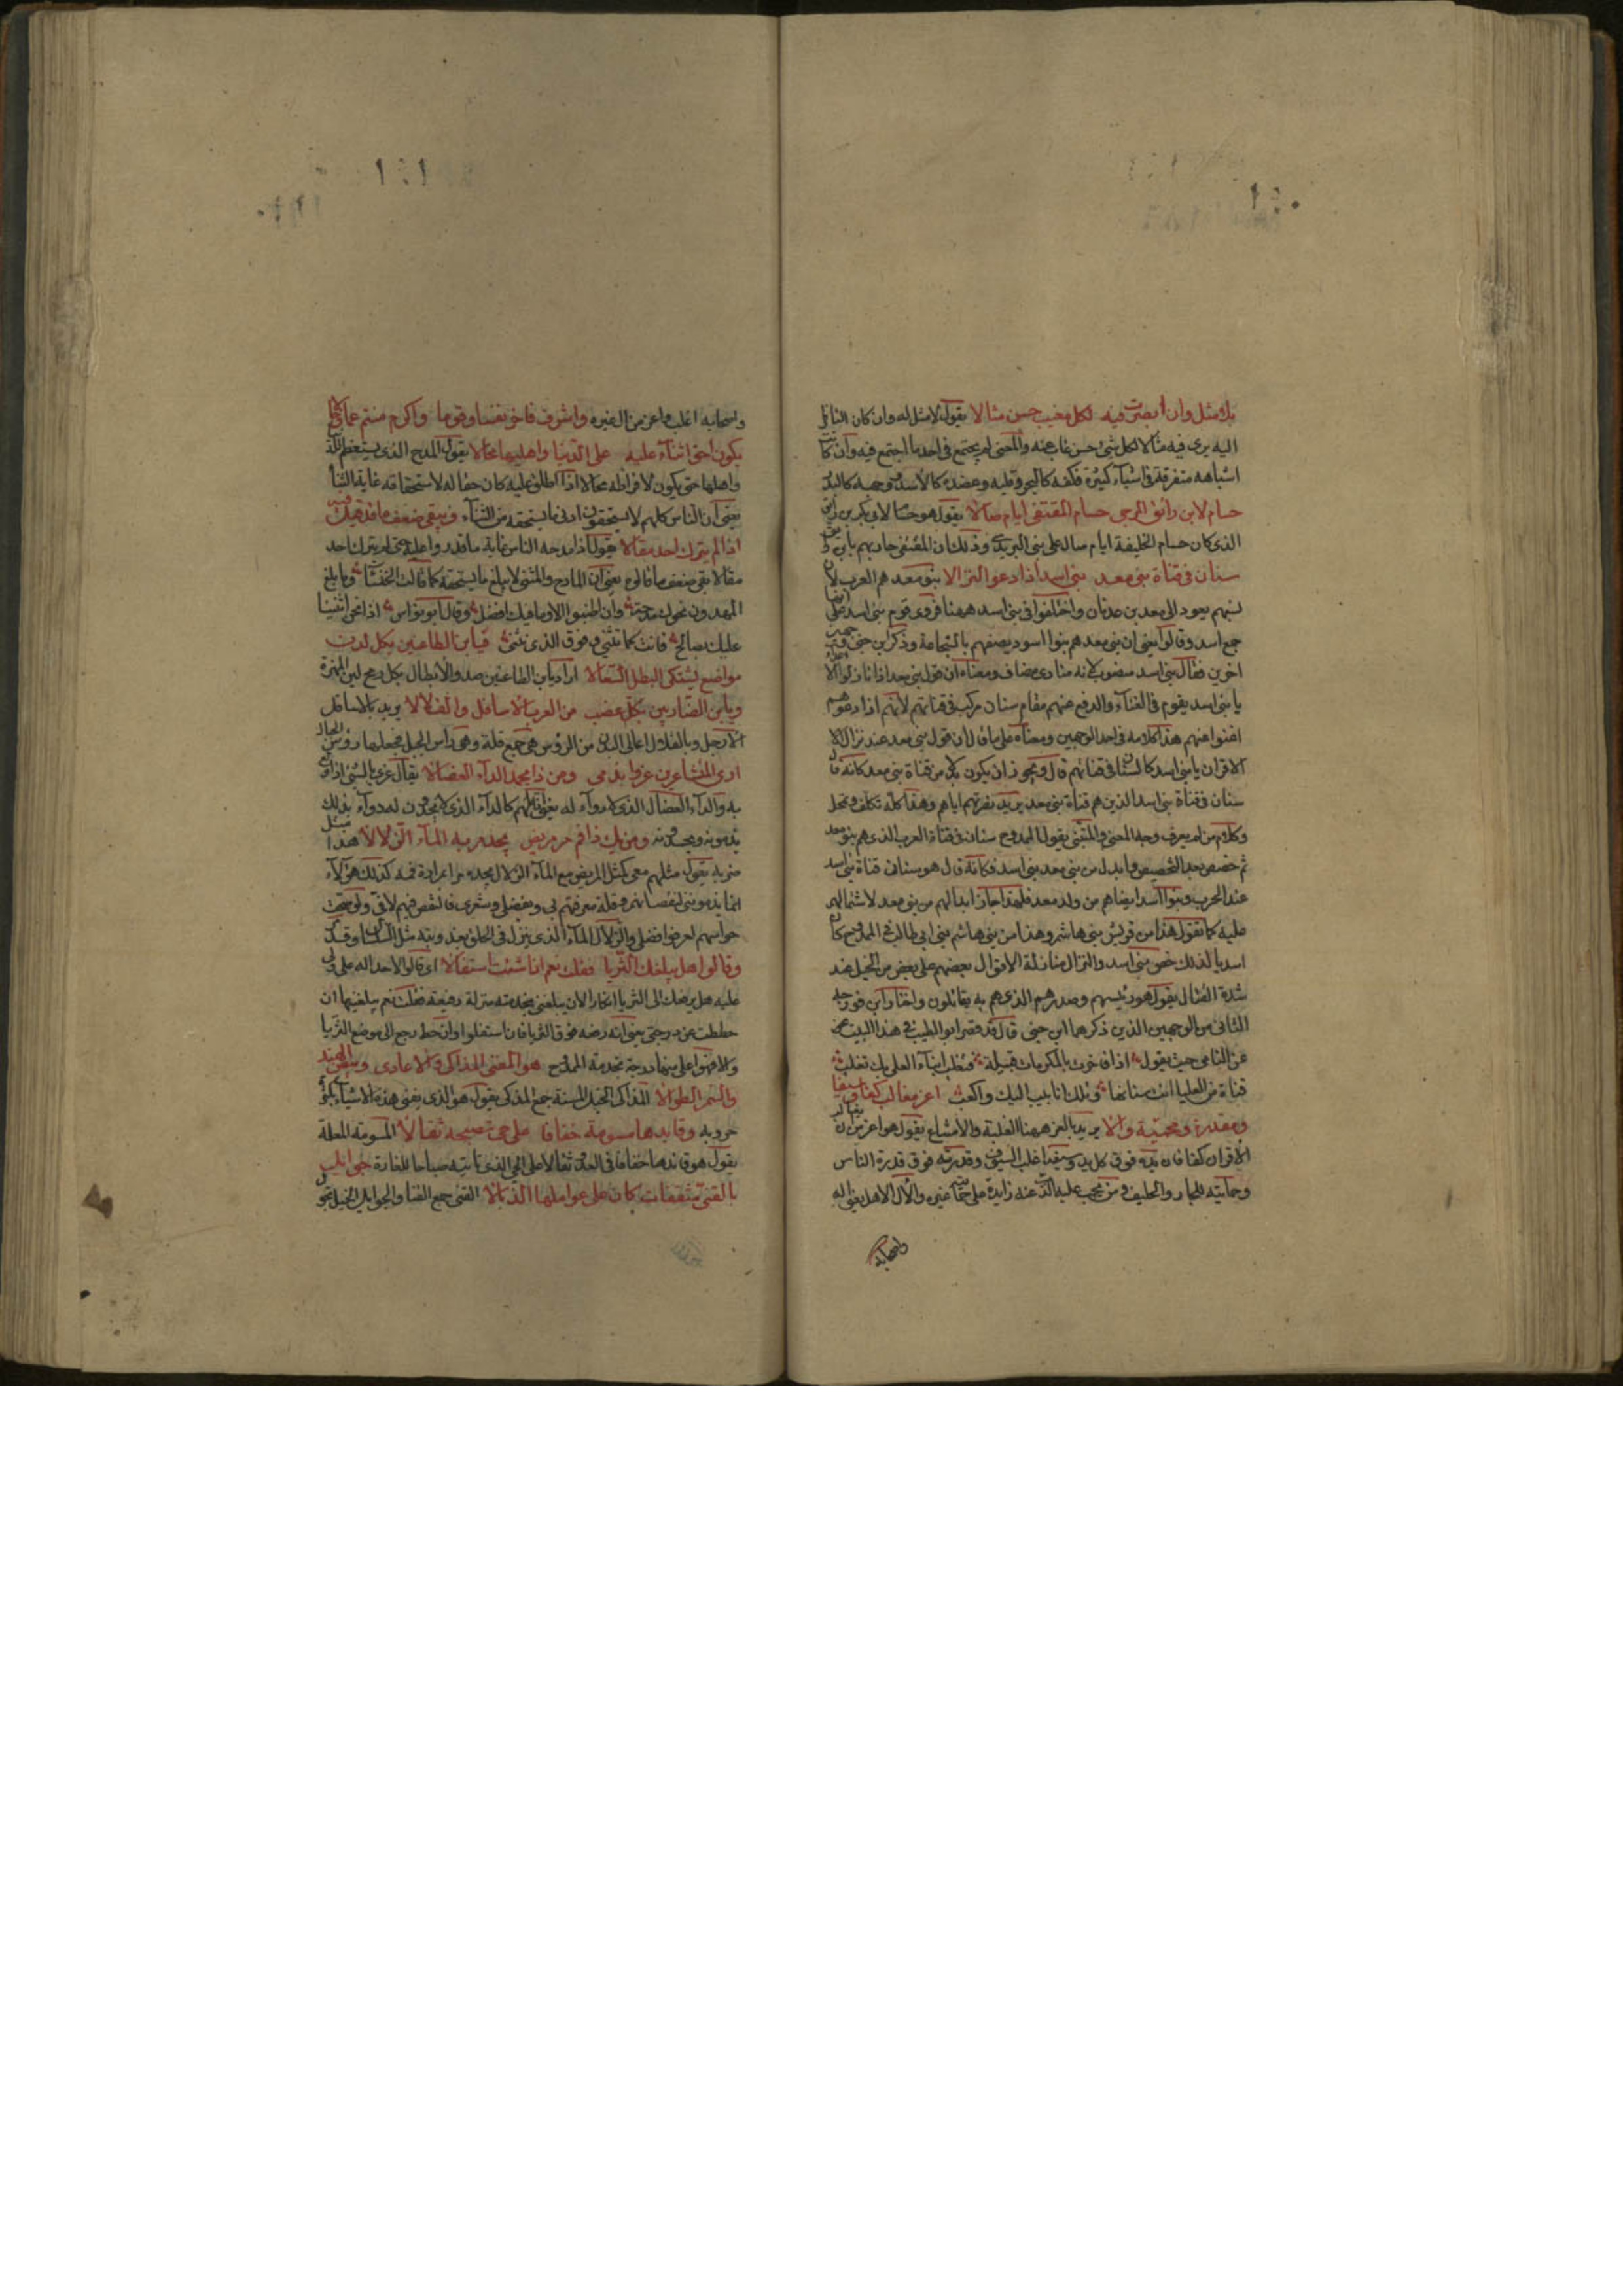 ١٤٠
بلا مثل وان ابصرت فيه لكل مغيب حسن مثالا يقول لا مثل له وان كان الناظر
اليه يرى فيه مثالا لكل شئ حسن غاب عنه والمعنى لم يجتمع في احد ما اجتمع فيه وان كانت
اشباهه متفرقة في اشياء كثيرة فكفه كالبحر وقلبه وعضده كالاسد ووجهه كالبدر
حسام لابن رائق المرجى حسام المتقي ايام صالا يقول هو حسام لابي بكر بن رائق
الذي كان حسام الخليفة ايام صاله على بني البريدي وذلك ان المتقي حاربهم بابن رائق
سنان في قناة بني معد بني اسد اذا دعوا النزالا بنو معد هم العرب لان
نسبهم يعود الى معد بن عدنان واختلفوا في بني اسد ههنا فروى قوم بني اسد على انها
جمع اسد وقالوا يعني ان بني معد هم بنوا اسود يصفهم بالشجاعة وذكر ابن جني وجهين
اخرين فقال بني اسد منصوب لانه منادى مضاف ومعناه ان قول بني معد اذا نازلوا الاعداء
يا بني اسد يقوم في الغناء والدفع عنهم مقام سنان مركب في قناتهم لانهم اذا دعوهم
اغنوا عنهم هذا كلامه في احد الوجهين ومعناه على ما قال ان قول بني معد عند نزال
الاقران يا بني اسد كالسنان في قناتهم قال ويجوز ان يكون بدلا من قناة بني معد كانه قال
سنان في قناة بني اسد الذين هم قناة بني معد يريد نصرتهم اياهم وهذا كله تكلف وتمحل
وكلام من لم يعرف وجه المعنى والمتنبي يقول الممدوح سنان في قناة العرب الذي هم بنو معد
ثم خصص بعد التخصيص وابدل من بني معد بني اسد فكانه قال هو سنان في قناة بني اسد
عند الحرب وبنوا اسد ايضا هم من ولد معد فلهذا جاز ابدالهم من بني معد لاشتمالهم
عليه كما تقول هذا من قريش بني هاشم وهذا من بني هاشم بني ابي طالب الممدوح كان
اسديا لذلك خص بني اسد والنزال منازلة الاقوال بعضهم على بعض من الخيل عند
شدة القتال يقول هو رئيسهم وصدرهم الذي هم به يقاتلون واختار ابن فورجه
الثاني من الوجهين الذين ذكرهما ابن جني قال قد قصر ابو الطيب في هذا البيت عن
عن النامي حيث يقول اذا فاخرت بالمكرمات قبيلة فتغلب ابناء العلى بك تغلب
قناة من العليا انت سنانها وتلك انابيب اليك واكعب اعز مغالب كفا وسيفا
ومقدرة ومحمية والا يريد بالعز ههنا الغلبة والامتناع يقول هو اعز من يغالب
الاقران كفا فان يده فوق كل يد وسيفه اغلب السيوف وقدرته فوق قدرة الناس
وحمايته للجار والحليف ومن يجب عليه الذب عنه زايدة على حماية غيره والآل الاهل يعني اله
واصحابه
١٤١
واصحابه اغلب واعز من ال غيره واشرف فاخر نفسا وقوما واكرم منتم عما وخالا
يكون احق اثناء عليه على الدنيا واهليها محالا يقول المدح الذي يستعظم للدنيا
واهلها حتى يكون لافراطه محالا اذا اطلق عليه كان حقا له لاستحقاقه غاية الثناء
يعني ان الناس كلهم لا يستحقون ادنى ما يستحقه من الثناء ويبقى ضعف ما قد قيل فيه
اذا لم يترك احد مقالا يقول اذا مدحه الناس غاية ما قدروا عليه حتى لم يترك احد
مقالا بقي ضعف ما قالوه يعني ان المادح والمثني لا يبلغ ما يستحقه كما قالت الخنساء وما بلغ
المهدون نحوك مدحة وان اطنبوا الا وما فيك افضل وقال ابو نواس اذا نحن اثنينا
عليك بصالح فانت كما نثني وفوق الذي نثني فيا ابن الطاعنين بكل لدن
مواضع يشتكي البطل السعالا اراد يا ابن الطاعنين صدور الابطال بكل رمح لين المهزة
ويا ابن الضاربين بكل عضب من العرب الاسافل والقلالا يريد بالاسافل
الارجل وبالقلال اعالي البدن من الرؤس هي جمع قلة وهي راس الجبل فجعلها رؤس الرجال
ارى المتشاعرين غروا بذمي ومن ذا يحمد الداء العضالا يقال غري بالشئ اذا ولع
به والداء العضال الذي لا دواء له يعني انا لهم كالداء الذي لا يجدون له دواء بذلك
يذمونه ويحسدونه ومن يك ذا فم مر مريض يجد مرا به الماء الزلالا هذا مثل
ضربه يقول مثلهم معي كمثل المريض مع الماء الزلال يجده مرا لمرارة فمه كذلك هؤلاء
انما يذمونني لنقصانهم وقلة معرفتهم بي وبفضلي وشعري فالنقص فيهم لا في ولو صحت
حواسهم لعرفوا فضلي والزلال الماء الذي ينزل في الحلق
وقالوا هل يبلغك الثريا فقلت نعم اذا شئت استفالا اي قالوا لاحد اله على
عليه هل يرفعك الى الثريا انكارا لان يبلغني بخدمته منزلة رفيعة فقلت نعم يبلغنيها ان
حططت من درجتي يعني انه رفعه فوق الثريا فان استفلوا وان حط رجع الى موضع الثريا
والا فهو اعلى منها درجة بخدمة الممدوح هو المفني المذاكي والاعادي وبيض الهند
والسمر الطوالا المذاكي الخيل المسنة جمع المذكي يقول هو الذي يفني هذه الاشياء بكثرة
حروبه وقايدها مسومة خفافا على حي تصبحه ثقالا المسومة المعلمة
يقول هو قائدها خفافا في العدو ثقالا على الحي الذي تاتيه صباحا للغارة جوائل
بالقنى مثقفات كان على عواملها الذبالا القنى جمع القنا والجوايل الخيل تجول